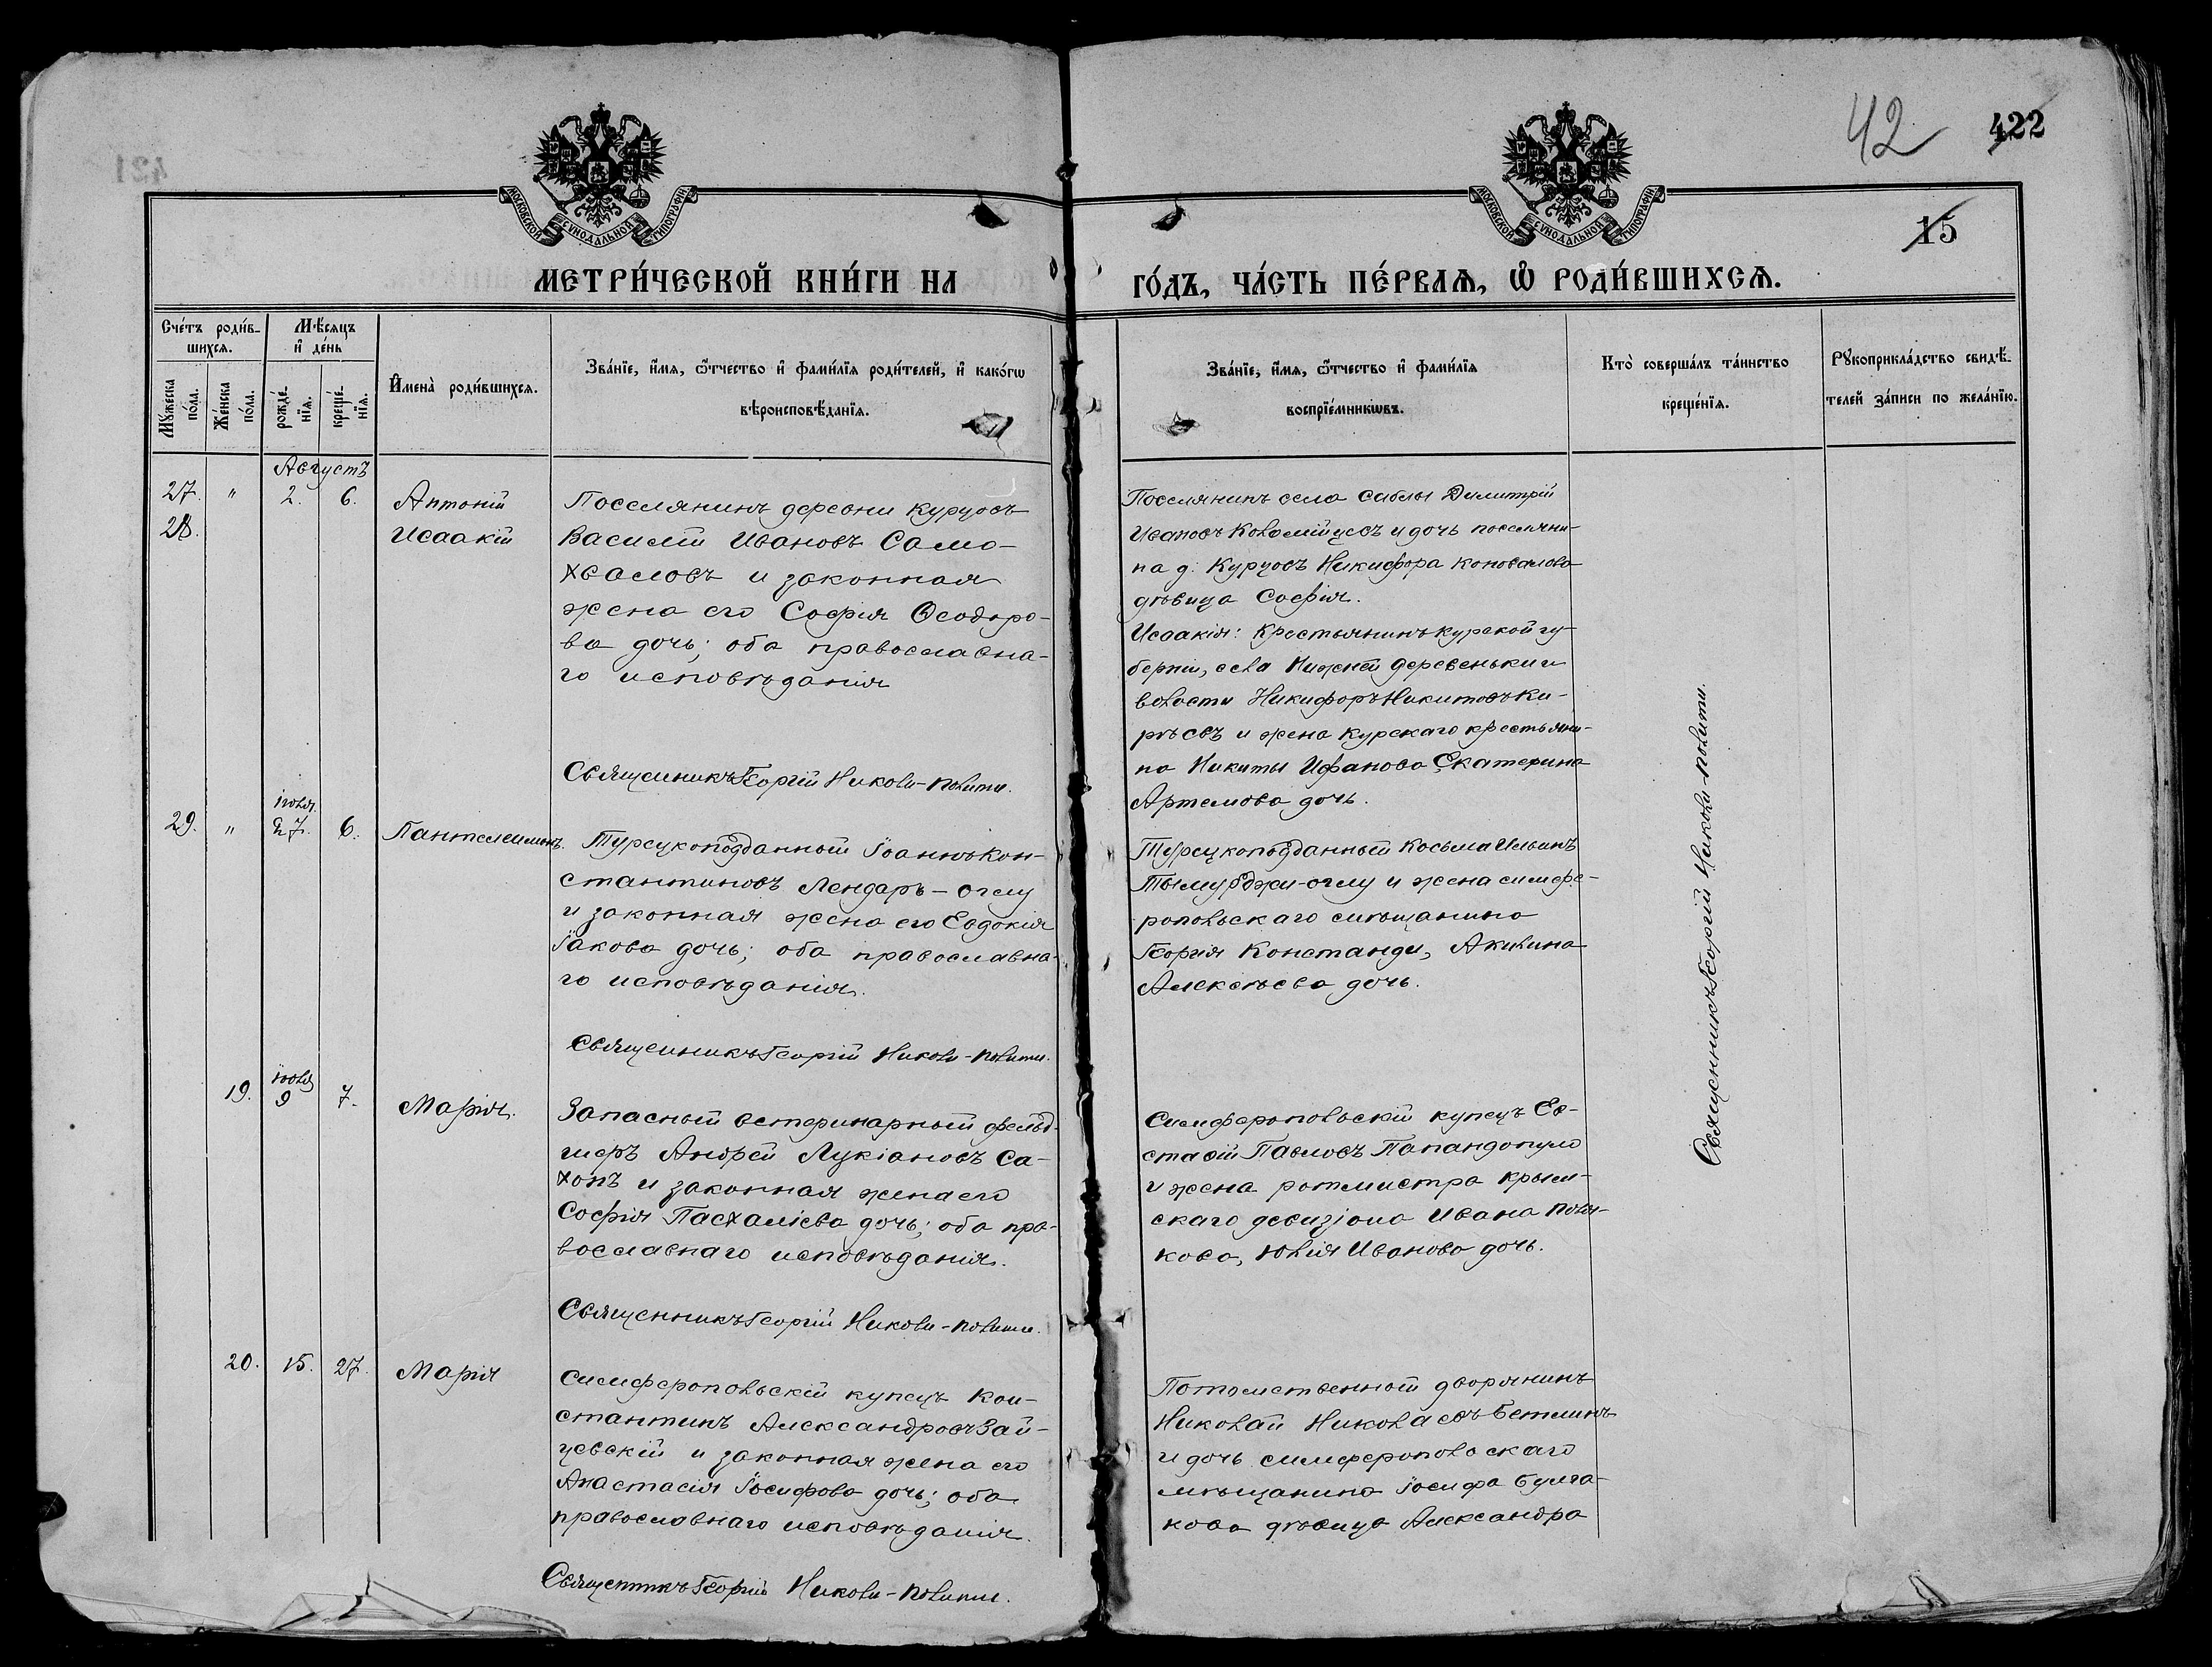 42
422
421
15
МОСКОВСКОЙ СѴНОДАЛЬНОЙ ТИПОГРАФІИ
МОСКОВСКОЙ СѴНОДАЛЬНОЙ ТИПОГРАФІИ
МЕТРИ́ЧЕСКОЙ КНИ́ГИ НА ГО́ДЪ, ЧА́СТЬ ПЕ́РВАѦ, Ѽ РОДИ́ВШИХСѦ.
Сче́тъ роди́в-
шихся.
Мѣ́сяцъ
и҆ де́нь
Мꙋ́жеска
по́ла.
Же́нска
по́ла.
рожде́-
нїя.
креще́-
нїя.
И҆мена̀ роди́вшихся.
Зва́нїе, и҆́мя, ѻ҆́тчество и҆ фами́лїя роди́телей, и҆ како́гѡ
вѣроисповѣ́данїя.
Зва́нїе, и҆́мя, ѻ҆́тчество и҆ фами́лїя
воспрїе́мникѡвъ.
Кто̀ соверша́лъ та́инство
креще́нїя.
Рꙋкоприкла́дство свидѣ́-
телей за́писи по жела́нїю.
Августъ
27. " 2. 6. Антоній
28. Исаакій
Поселянинъ деревни Курцовъ
Василій Ивановъ Само-
хваловъ и законная
жена его Софія Ѳеодоро-
ва дочь; оба православна-
го исповѣданія
Священникъ Георгій Николи-Полити.
Поселянинъ села Саблы Димитрій
Ивановъ Коломійцевъ и дочь поселяни-
на д. Курцовъ Никифора Коновалова
дѣвица Софія.
Исаакія: Крестьянинъ Курской гу-
берніи, села Нижней Деревеньки и
волости Никифоръ Никитовъ Ки-
рѣевъ и жена Курскаго крестьяни-
на Никиты Ифанова Екатерина
Артемова дочь.
29. " Іюля 27. 6. Пантелеимонъ.
Турецкоподданный Іоаннъ Кон-
стантиновъ Лендаръ-оглу
и законная жена его Евдокія
Іакова дочь; оба православна-
го исповѣданія.
Священникъ Георгій Николи-Полити.
Турецкоподданный Косьма Ильинъ
Тымурджи-оглу и жена симфе-
ропольскаго мѣщанина
Георгія Константи, Акилина
Алексѣева дочь.
19. Іюля 9 7. Марія.
Запасный ветеринарный фельд-
шеръ Андрей Лукіановъ Са-
хонъ и законная жена его
Софія Пасхаліева дочь; оба пра-
вославнаго исповѣданія.
Священникъ Георгій Николи-Полити.
Симферопольскій купецъ Ев-
стафій Павловъ Папандопуло
и жена ротмистра крым-
скаго дивизіона Ивана Поля-
кова, Юлія Иванова дочь.
20. 15. 27. Марія
Симферопольскій купецъ Кон-
стантинъ Александровъ Зай-
цевскій и законная жена его
Анастасія Іосифова дочь; оба
православнаго исповѣданія.
Священникъ Георгій Николи-Полити.
Потомственный дворянинъ
Николай Николаевъ Бетлинъ
и дочь симферопольскаго
мѣщанина Іосифа Булга-
кова дѣвица Александра
Священникъ Георгій Николи-Полити.